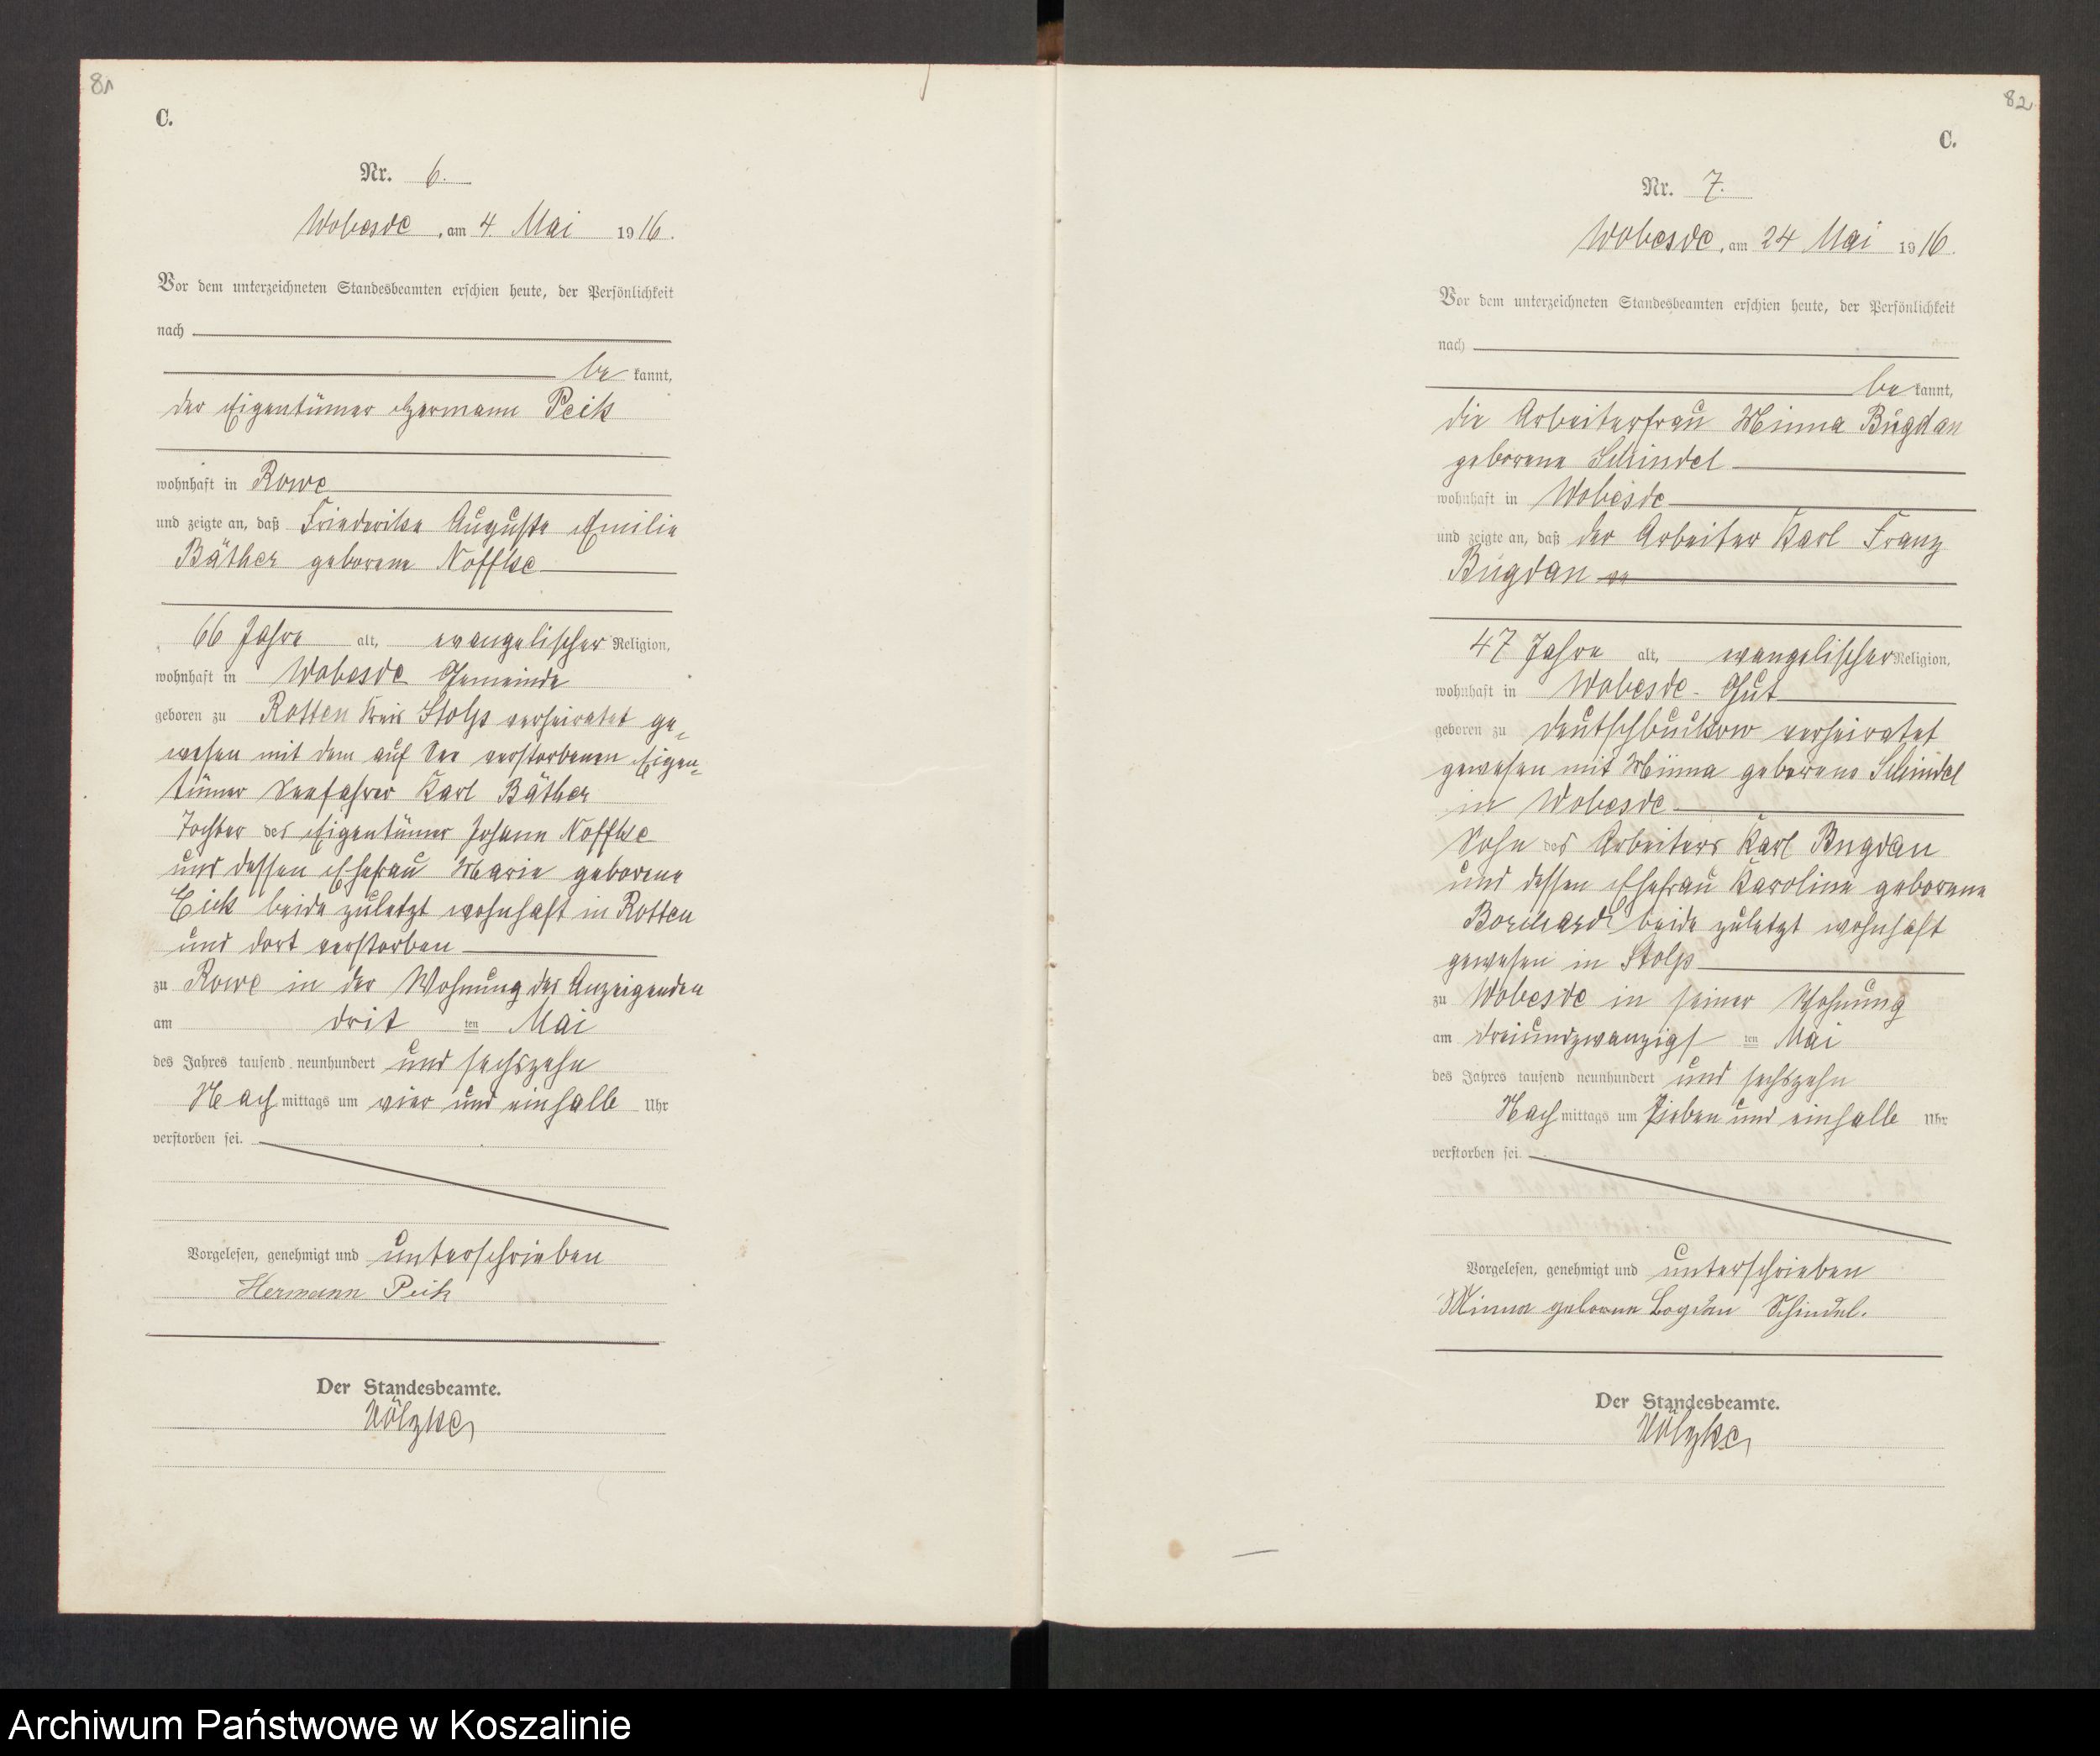 81
C.
Nr. 6.
Wobesde, am 4. Mai 1916.
Vor dem unterzeichneten Standesbeamten erschien heute, der Persönlichkeit
nach
be kannt,
der Eigentümer Hermann Peik
wohnhaft in Rowe
und zeigte an, daß Friederike Auguste Emilie
Bäther geborene Noffke
66 Jahre alt, evangelischer Religion,
wohnhaft in Wobesde Gemeinde
geboren zu Rotten Kreis Stolp verheiratet ge-
wesen mit dem auf See verstorbenen Eigen-
tümer Seefahrer Karl Bäther
Tochter des Eigentümer Johann Noffke
und dessen Ehefrau Marie geborene
Eick beide zuletzt wohnhaft in Rotten
und dort verstorben
zu Rowe in der Wohnung des Anzeigenden
am drit ten Mai
des Jahres tausend neunhundert und sechszehn
Nach mittags um vier und einhalb Uhr
verstorben sei.
Vorgelesen, genehmigt und unterschrieben
Hermann Peik
Der Standesbeamte.
Völzke
82
C.
Nr. 7.
Wobesde, am 24 Mai 1916.
Vor dem unterzeichneten Standesbeamten erschien heute, der Persönlichkeit
nach
be kannt,
die Arbeiterfrau Minna Bugdan
geborene Schindel
wohnhaft in Wobesde
und zeigte an, daß der Arbeiter Karl Franz
Bugdan
47 Jahre alt, evangelischer Religion,
wohnhaft in Wobesde-Gut
geboren zu Deutschbuckow verheiratet
gewesen mit Minna geborene Schindel
in Wobesde
Sohn des Arbeiters Karl Bugdan
und dessen Ehefrau Karoline geborene
Borchardt beide zuletzt wohnhaft
gewesen in Stolp
zu Wobesde in seiner Wohnung
am dreiundzwanzigs ten Mai
des Jahres tausend neunhundert und sechszehn
Nach mittags um sieben und einhalb Uhr
verstorben sei.
Vorgelesen, genehmigt und unterschrieben
Minna geborne Bogdan Schindel.
Der Standesbeamte.
Völzke
Archiwum Państwowe w Koszalinie